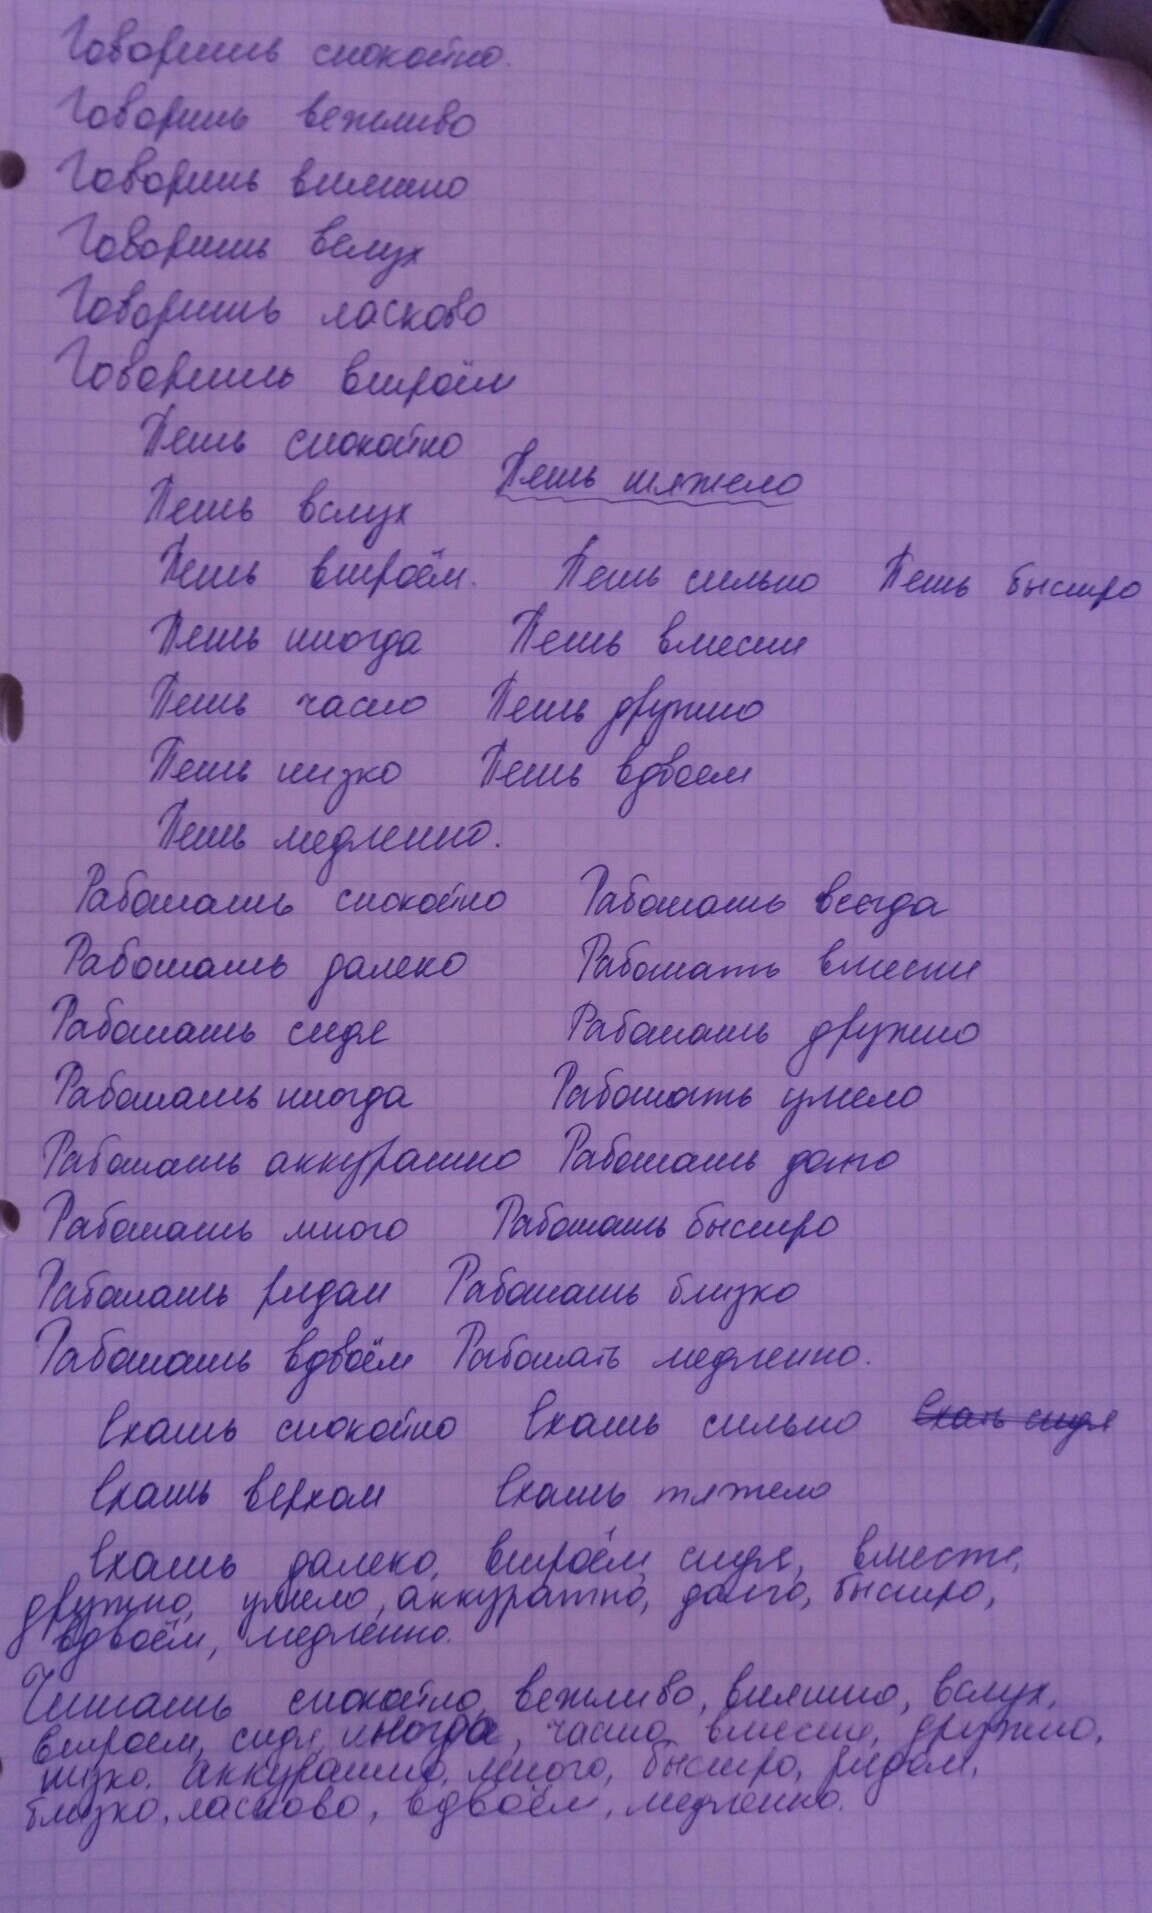 Говоришь спокойно.
Говоришь вежливо
Говоришь внятно
Говоришь вслух
Говоришь ласково
Говоришь втроём
Петь спокойно
Петь тяжело
Петь вслух
Петь втроём. Петь сильно Петь быстро
Петь иногда Петь вместе
Петь часто Петь дружно
Петь низко Петь вдвоем
Петь медленно.
Работать спокойно Работать всегда
Работать далеко Работать вместе
Работать сидя Работать дружно
Работать иногда Работать умело
Работать аккуратно Работать долго
Работать много Работать быстро
Работать рядом Работать близко
Работать вдвоём Работать медленно.
Ехать спокойно Ехать сильно Ехать сидя
Ехать верхом Ехать тяжело
Ехать далеко, втроём, сидя, вместе,
дружно, умело, аккуратно, долго, быстро,
вдвоём, медленно.
Читать спокойно, вежливо, внятно, вслух,
втроем, сидя, иногда, часто, вместе, дружно,
низко, аккуратно, много, быстро, рядом,
близко, ласково, вдвоём, медленно.